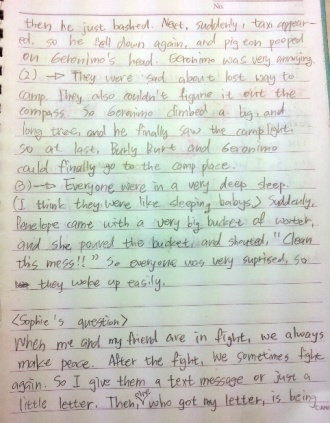 No
then he just bashed. Next, suddenly, taxi appear-
ed, so he fell down again, and pigeon pooped
on Geronimo's head. Geronimo was very annoying.
(2) → They were sad about lost way to
camp. They also couldn't figure it out the
compass. So Geronimo climbed a big, and
long tree, and he finally saw the camplight.
so at last, Burly Burt and Geronimo
could finally go to the camp place.
(3) → Everyone were in a very deep sleep.
(I think they were like sleeping babys) Suddenly,
Penelope came with a very big bucket of watter,
and she poured the bucket, and shouted, "Clean
this mess!!" So everyone was very suprised, so
they woke up easily.
<Sophie's question>
When me and my friend are in fight, we always
make peace. After the fight, we sometimes fight
again. So I give them a text message or just a
little letter. Then, she who got my letter, is being